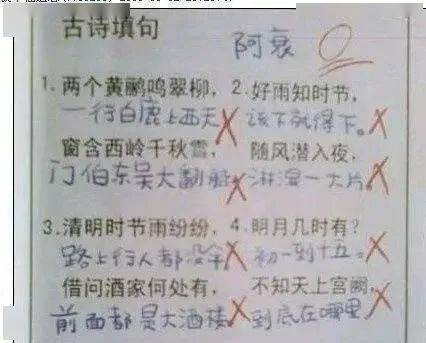 古诗填句
阿衰 0
1.两个黄鹂鸣翠柳，2.好雨知时节，
一行白鹿上西天 该下就得下。
窗含西岭千秋雪，随风潜入夜，
门伯东吴大翻船 淋湿一大片
3.清明时节雨纷纷，4.明月几时有？
路上行人都没伞 初一到十五。
借问酒家何处有，不知天上宫阙，
前面都是大酒楼 到底在哪里